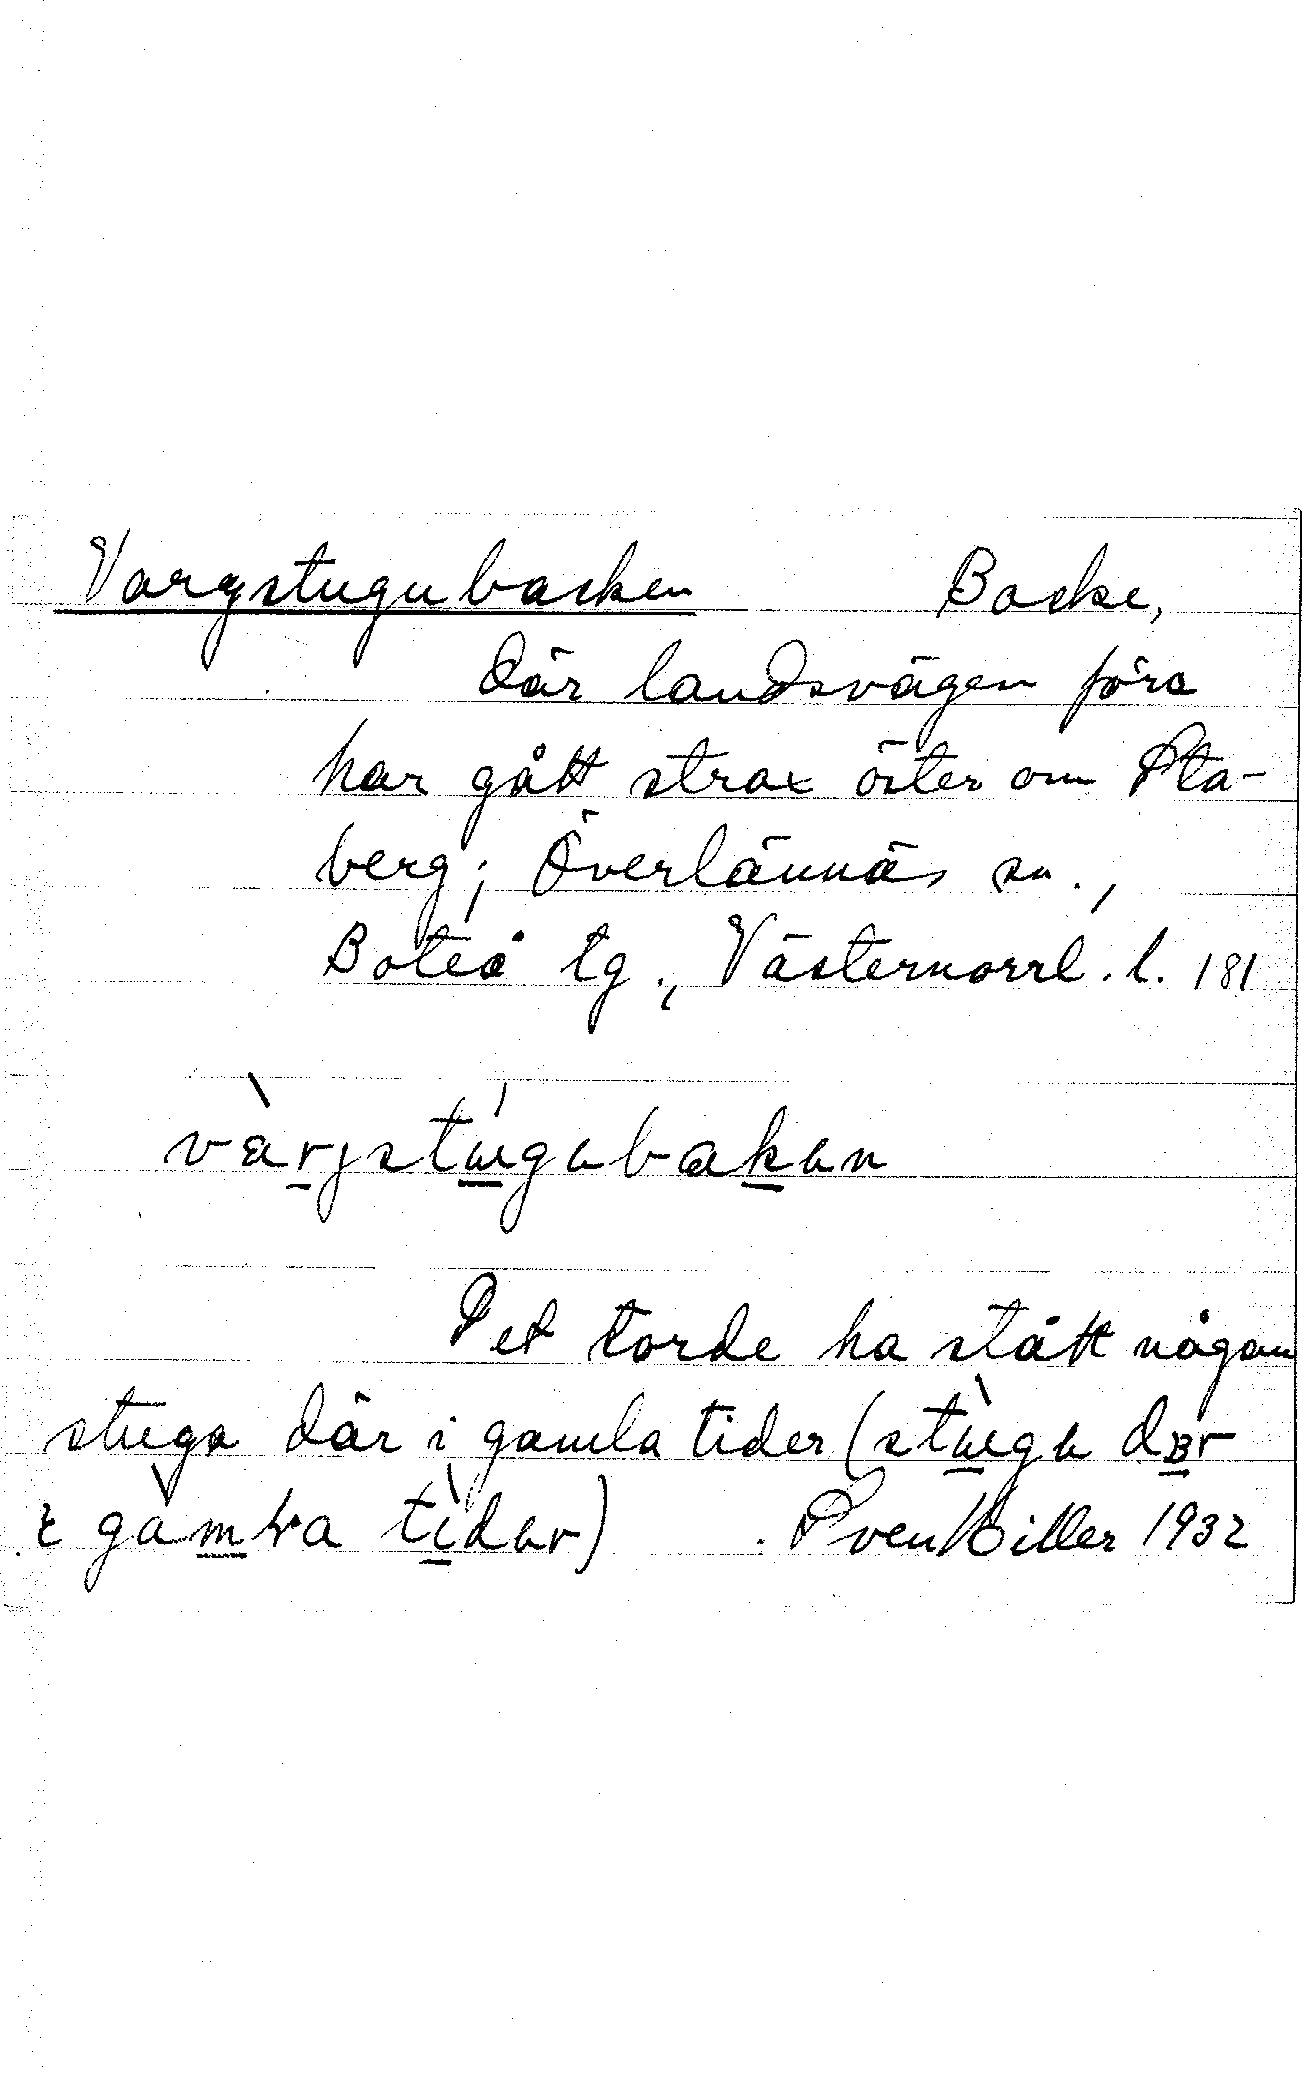 Vargstugubacken Backe,
där landsvägen förr
har gått strax öster om Sta-
berg; Överlännäs sn.,
Boteå tg., Västernorrl. l. 181
vàrjstúgubakan
Det torde ha stått någon
stuga där i gamla tider (stùga dær
i gàmla tìdar). Sven Hiller 1932